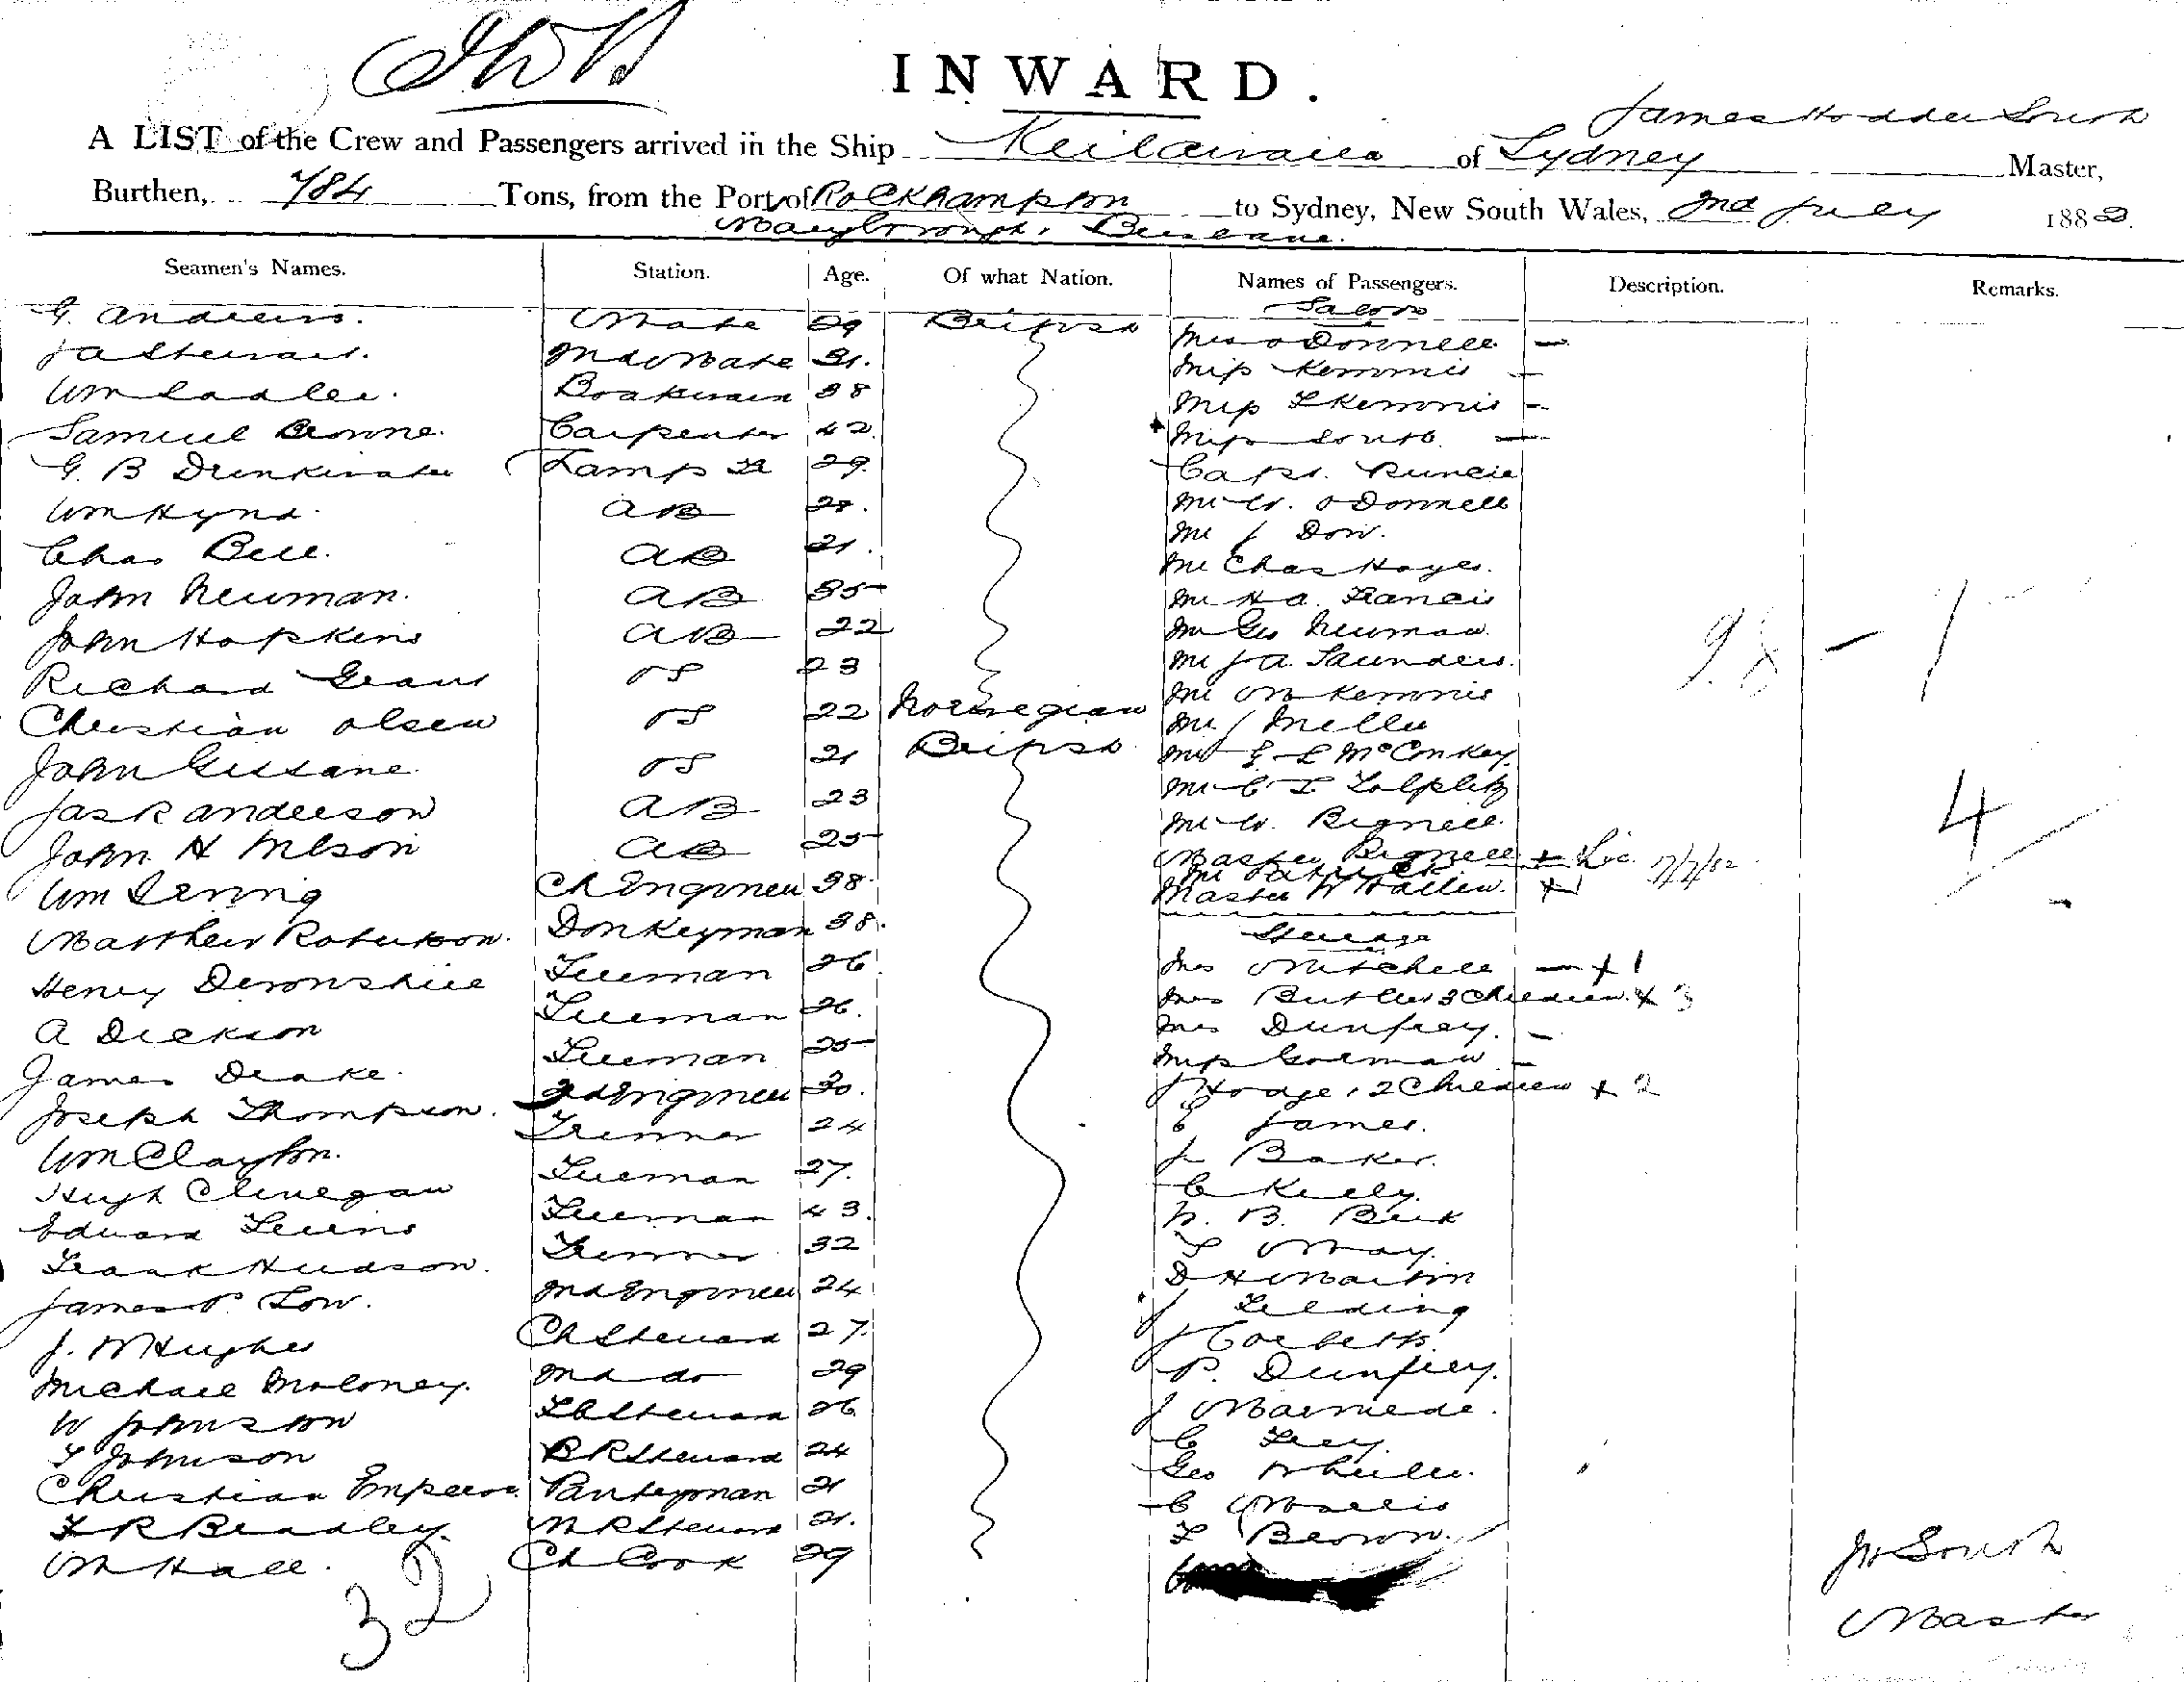 INWARD.
James Hodder South
A LIST of the Crew and Passengers arrived in the Ship Keilawarra of Sydney Master,
Burthen, 784 Tons, from the Port of Rockhampton to Sydney, New South Wales, 2nd July 1882.
Maryborough, Brisbane.
Seamen's Names. Station. Age. Of what Nation. Names of Passengers. Description. Remarks.
Saloon
G. Andrews. Mate 29 British Mrs O Donnell —
J A Stewart. 2nd Mate 31. Miss Kemmis —
Wm Cadler. Boatswain 38 Miss L Kemmis —
Samuel Browne. Carpenter 42. Miss South —
G. B Drinkwater Lamp Tr 29. Capt. Runcie
Wm Hynd. AB 28. Mr W. O Donnell
Chas Bell. AB 21. Mr J Dow.
John Neuman. AB 35 Mr Chas Hayes.
John Hopkins AB 22 Mr H A. Francis
Richard Grant OS 23 Mr Geo Neuman
Christian Olsen OS 22 Norwegian Mr J A. Saunders.
John Gissane OS 21 British Mr M Kemmis
Jas R Anderson AB 23 Mr J Miller
John H Nelson AB 25 Mr E L McConkey.
Wm Irving Ch Engineer 38. Mr C T
Matthew Robertson. Donkeyman 38. Mr W. Bignell
Henry Devonshire Fireman 26. Master Bignell + 17/7/82
A Dickson Fireman 26. Mr Patrick
James Drake. Fireman 25 Master W Wallen. + 1
Joseph Thompson. 3rd Engineer 30. Steerage
Wm Clayton. Trimmer 24 Mrs Mitchell — + 1
Hugh Clinegan Fireman 27. Mrs Butler 3 Children + 3
Edward Lewins Fireman 43. Mrs Dunfrey. —
Frank Hudson. Trimmer 32 Miss Gorman —
James P. Low. 2nd Engineer 24 J Hodge, 2 Children + 2
J. W Hughes Ch Steward 27. E James.
Michael Moloney. 2nd do 29 J Baker.
W Johnston FC Steward 26 C Kielly.
T Johnson BR Steward 24 B. Beck
Christian Emperor. Pantryman 21 T May.
F R Bradley. MR Steward 21. D H Martin
W Hall. Ch Cook 29 J Fielding
J Corbett.
P. Dunfrey.
J Marmede.
C Frey.
Geo Wheeler.
C Mallis
F Brown.
32
98 — 1
4
J H South
Master